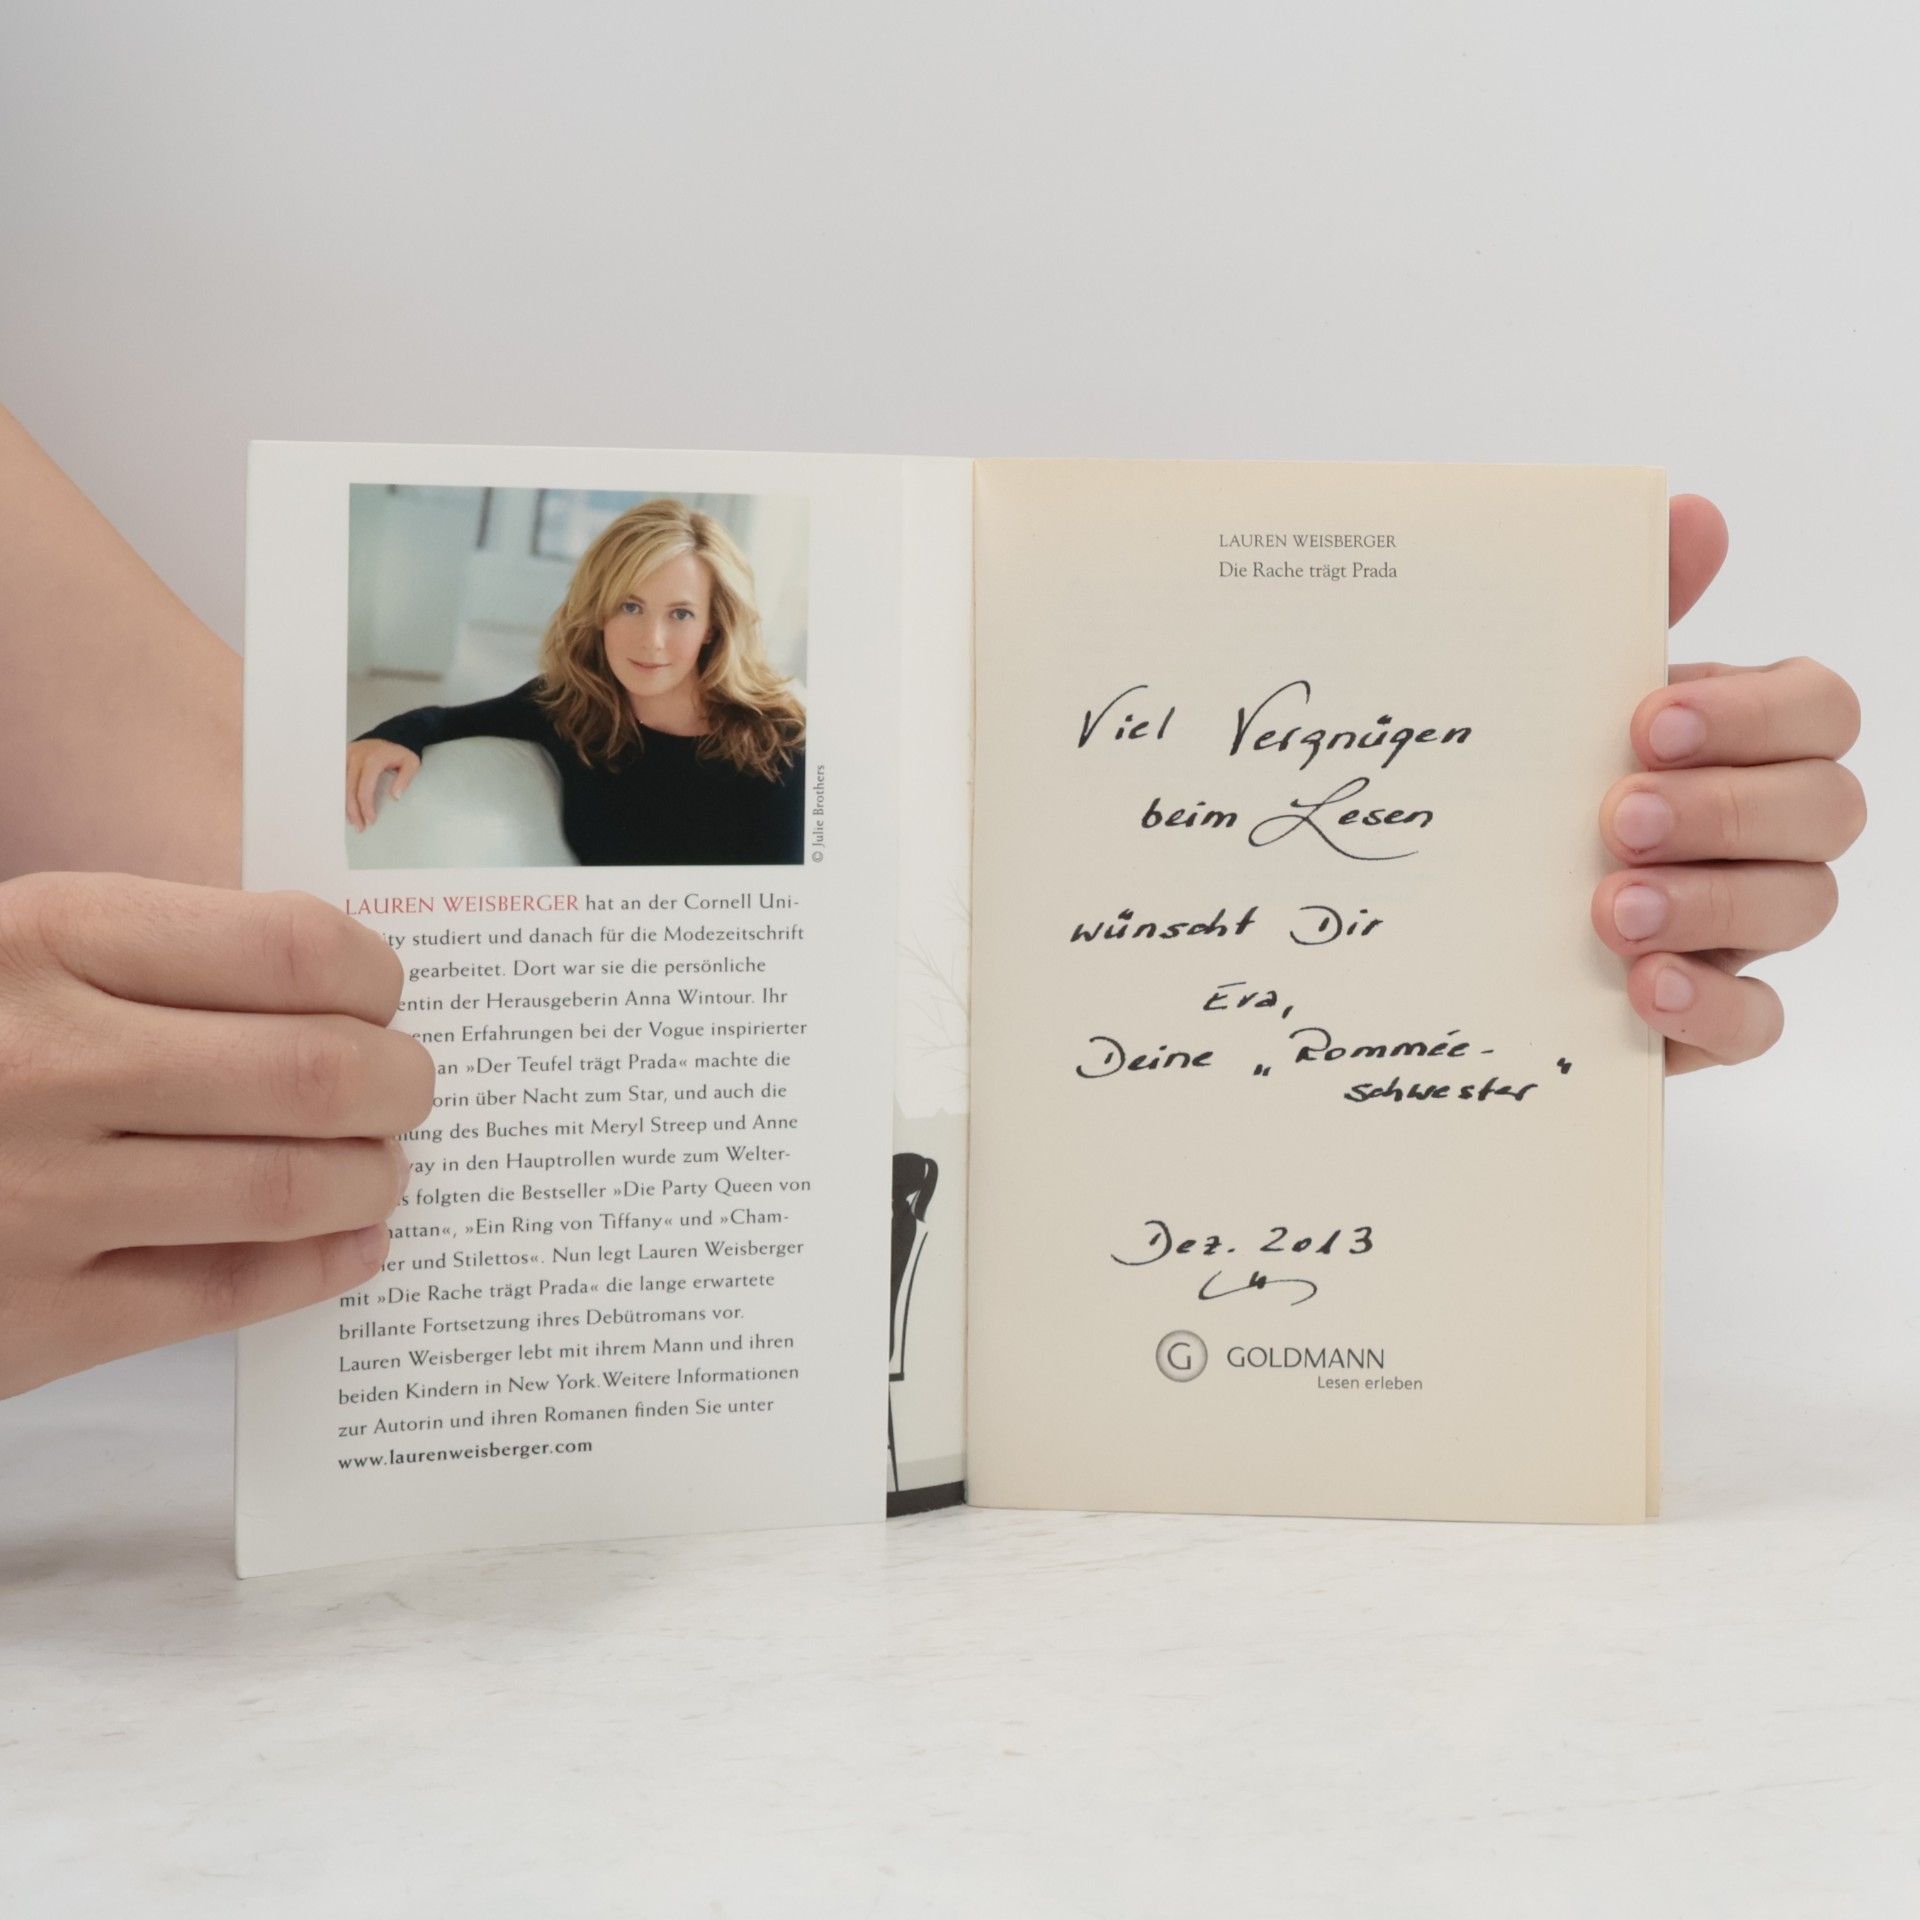 © Julie Brothers
LAUREN WEISBERGER hat an der Cornell Uni-
ity studiert und danach für die Modezeitschrift
gearbeitet. Dort war sie die persönliche
entin der Herausgeberin Anna Wintour. Ihr
enen Erfahrungen bei der Vogue inspirierter
an »Der Teufel trägt Prada« machte die
orin über Nacht zum Star, und auch die
mung des Buches mit Meryl Streep und Anne
way in den Hauptrollen wurde zum Welter-
s folgten die Bestseller »Die Party Queen von
hattan«, »Ein Ring von Tiffany« und »Cham-
er und Stilettos«. Nun legt Lauren Weisberger
mit »Die Rache trägt Prada« die lange erwartete
brillante Fortsetzung ihres Debütromans vor.
Lauren Weisberger lebt mit ihrem Mann und ihren
beiden Kindern in New York. Weitere Informationen
zur Autorin und ihren Romanen finden Sie unter
www.laurenweisberger.com
LAUREN WEISBERGER
Die Rache trägt Prada
Viel Vergnügen
beim Lesen
wünscht Dir
Eva,
Deine „Rommée-
schwester"
Dez. 2013
G GOLDMANN
Lesen erleben